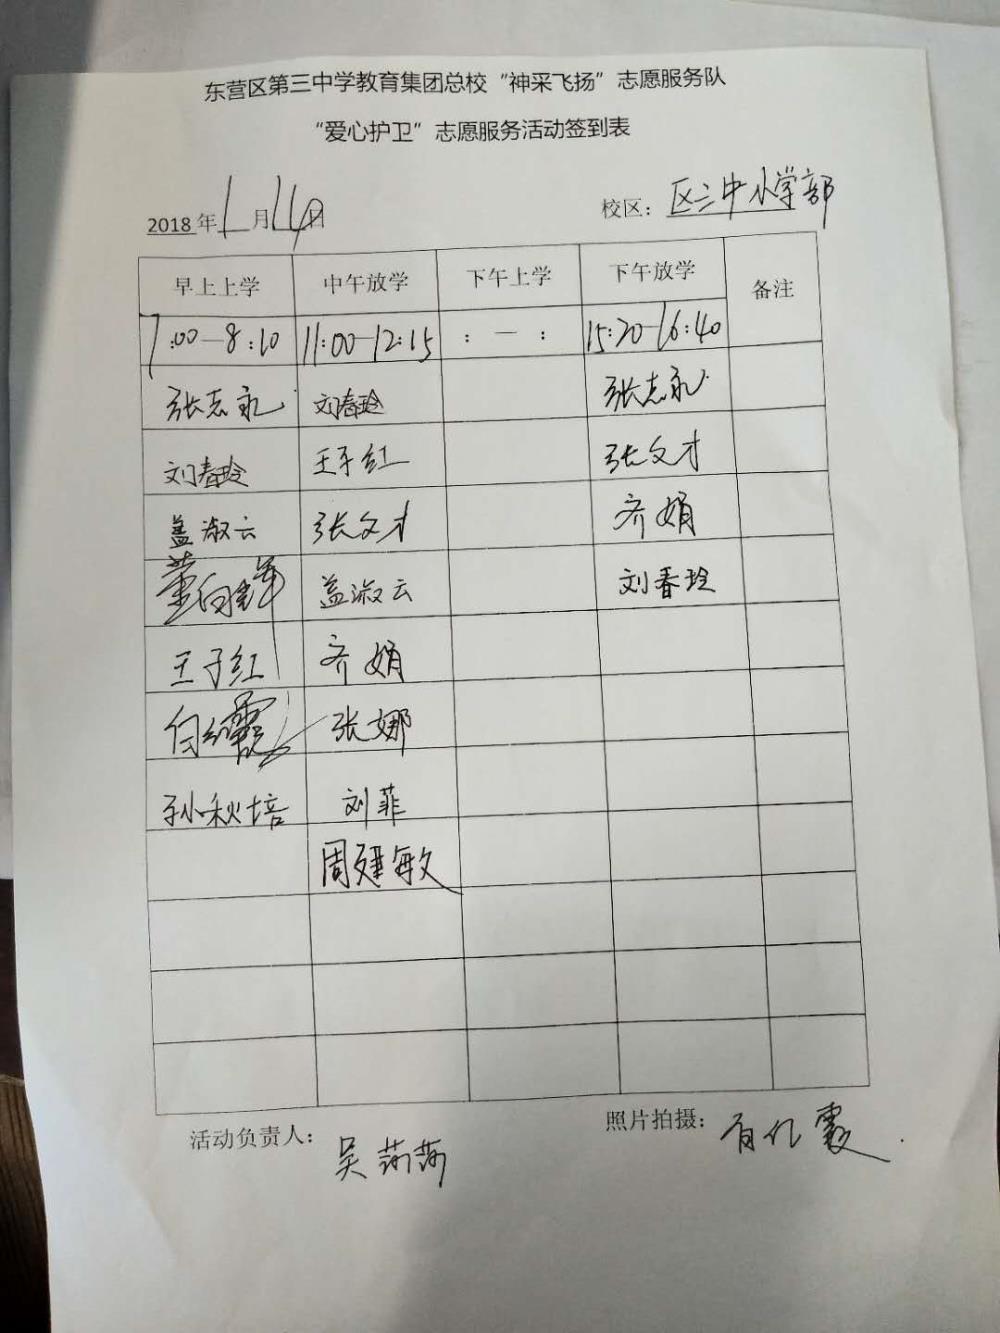 东营区第三中学教育集团总校“神采飞扬”志愿服务队
“爱心护卫”志愿服务活动签到表
2018年1月14日 校区：区三中小学部
早上上学 中午放学 下午上学 下午放学 备注
7:00—8:10 11:00-12:15 : — : 15:20-16:40
张志永 刘春玲 张志永
刘春玲 王子红 张文才
盖淑云 张文才 齐娟
董向军 盖淑云 刘春玲
王子红 齐娟
张娜
孙秋培 刘菲
周建敏
活动负责人： 吴莎莎 照片拍摄：